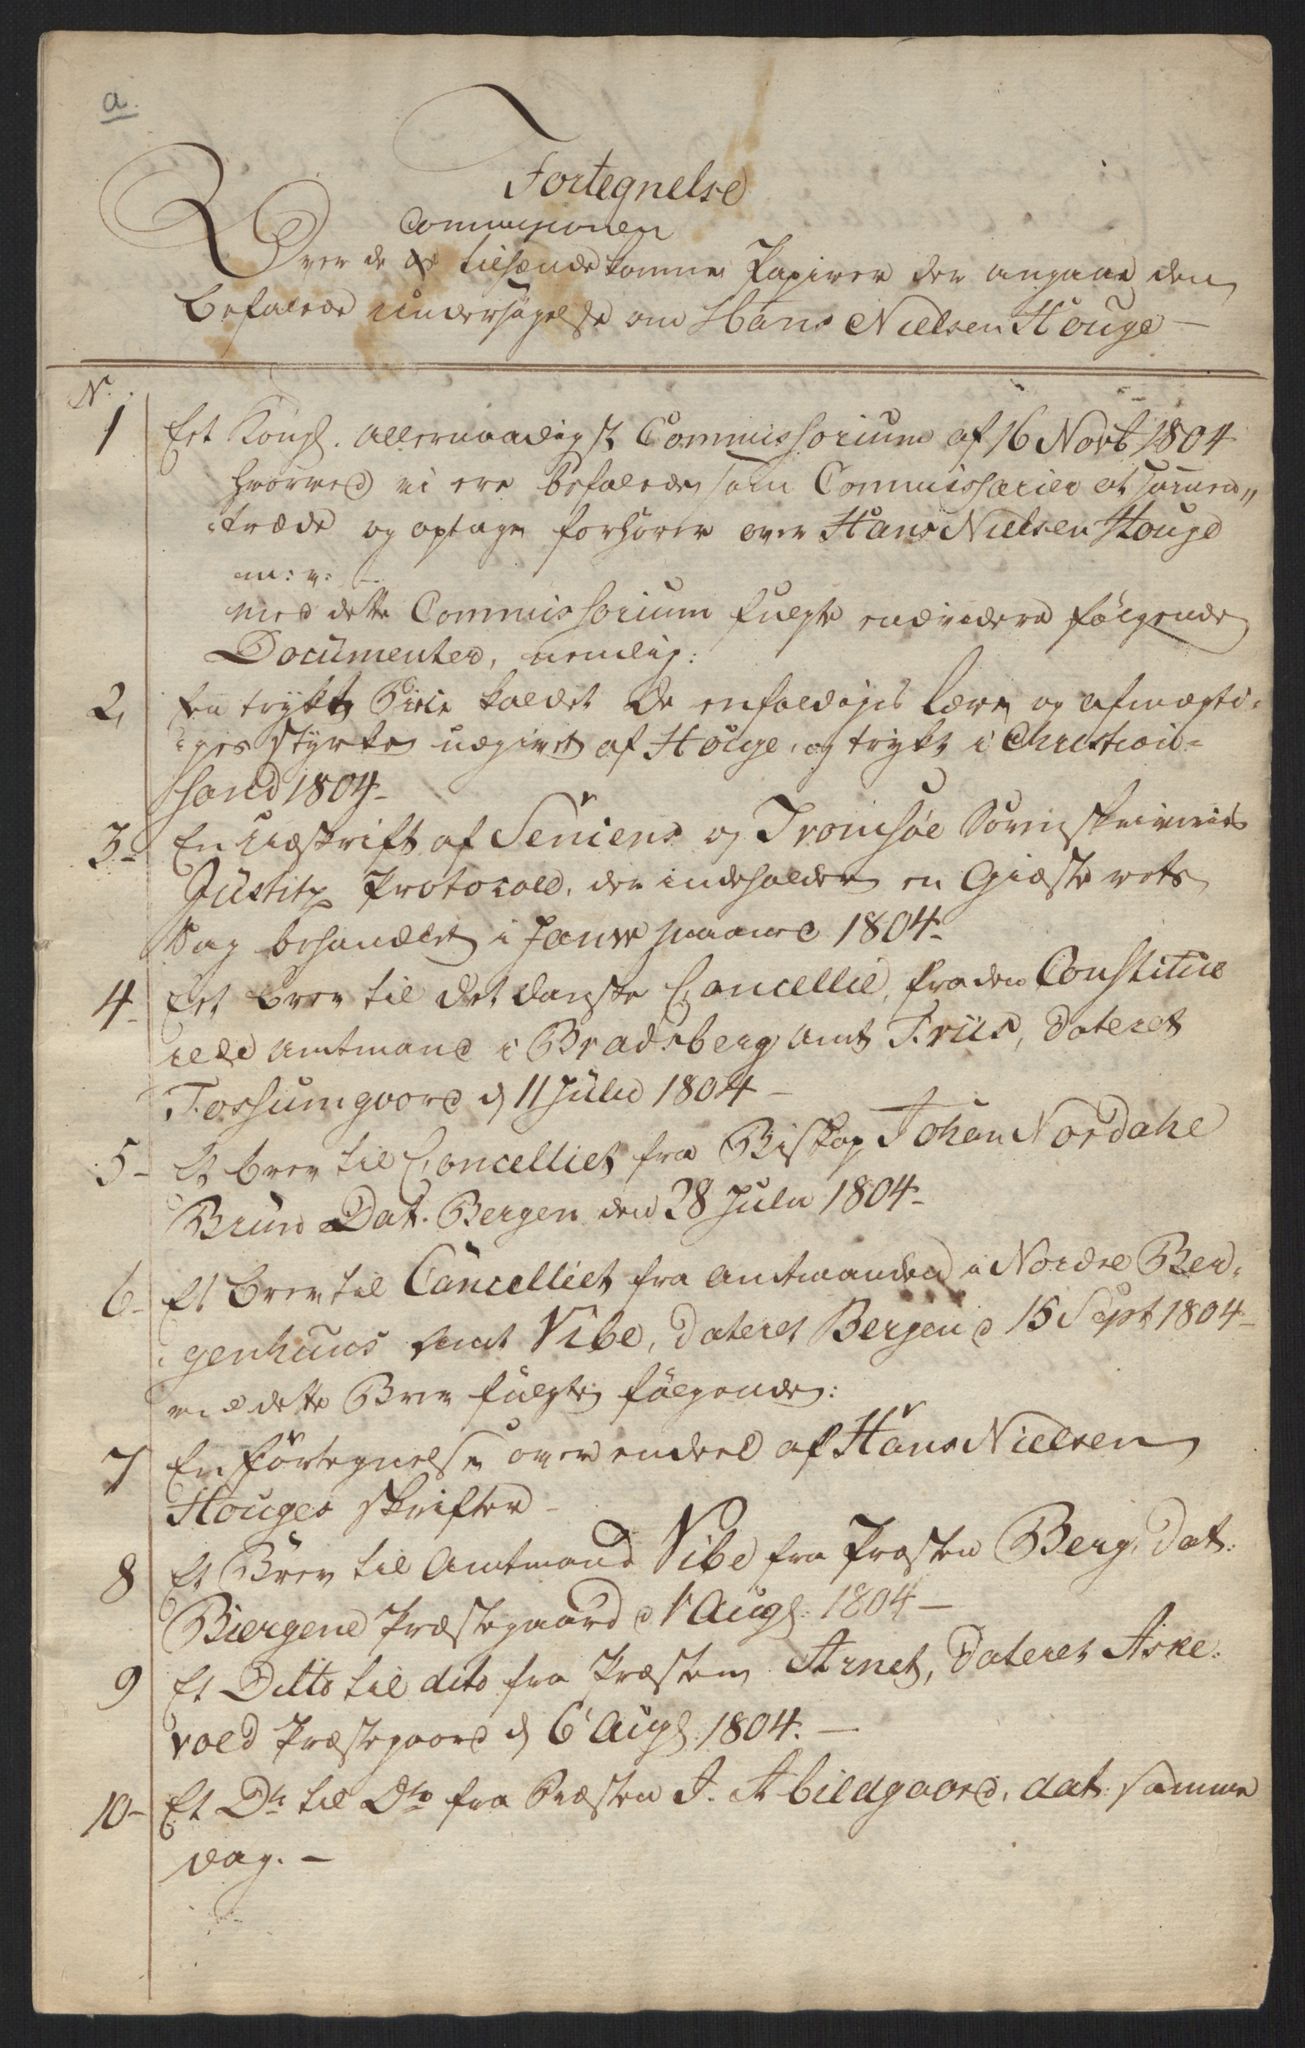 a.
Fortegnelse
Commissionen
Over de tilhændekomne Papirer der angaae den
befalede Undersøgelse om Hans Nielsen Houge —
N.
1 Eet Kongl. allernaadigst Commissorium af 16 Novb 1804
hvorved vi ere befalede som Commissarier at sammen„
træde og optage forhører over Hans Nielsen Houge
m: v: —
med dette Commissorium fulgte endvidere følgende
Documenter, nemlig:
2, En trykt Piece kaldet De enfoldiges Lære og afmægti-
ges Styrke udgivet af Houge, og trykt i Christian-
sand 1804 -
3- En Udskrift af Seniens og Tromsøe Sorenskriveries
Justitz Protocold, der indeholder en Giæste rets
Sag behandlet i Januar maaned 1804 -
4- Eet brev til det danske Cancellie, fra den Constitue
rede Amtmand i Bradsberg Amt Friis, Dateret
Fossumgaard d 11 Julii 1804 -
5- Et brev til Cancelliet fra Biskop Johan Nordahl
Brun Dat. Bergen den 28 Julii 1804 -
6- Et brev til Cancelliet fra Amtmanden i Nordre Ber-
genhuus Amt Vibe, Dateret Bergen d 15 Sept 1804 -
med dette Brev fulgte følgende:
7 En Fortegnelse over endeel af Hans Nielsen
Houges Skrifter -
8 Et Brev til Amtmand Vibe fra Præsten Berg, Dat:
Præstegaard d 1 Augs: 1804 —
9 Et Ditto til dito fra Præsten Arnet, Dateret Aske-
vold Præstegaard d 6 Augs. 1804. —
10- Et Dto til Dto fra Præsten J. Abildgaard, dat: samme
Dag. —